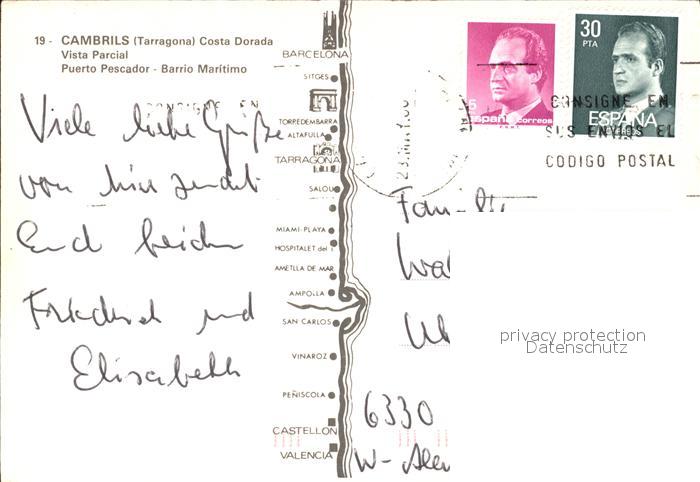 19 - CAMBRILS (Tarragona) Costa Dorada
Vista Parcial
Puerto Pescador - Barrio Marítimo
Viele liebe Grüße
von hier sendet
Euch beiden
Friedrich und
Elisabeth
BARCELONA
SITGES
TORREDEMBARRA
ALTAFULLA
TARRAGONA
SALOU
MIAMI-PLAYA
HOSPITALET del I
AMETLLA DE MAR
AMPOLLA
SAN CARLOS
VINAROZ
PEÑISCOLA
CASTELLON
VALENCIA
5
España correos
30
PTA
ESPAÑA
CONSIGNE EN
SUS ENVIOS EL
CODIGO POSTAL
CONSIGNE EN
Familie
6330
W-
privacy protection
Datenschutz